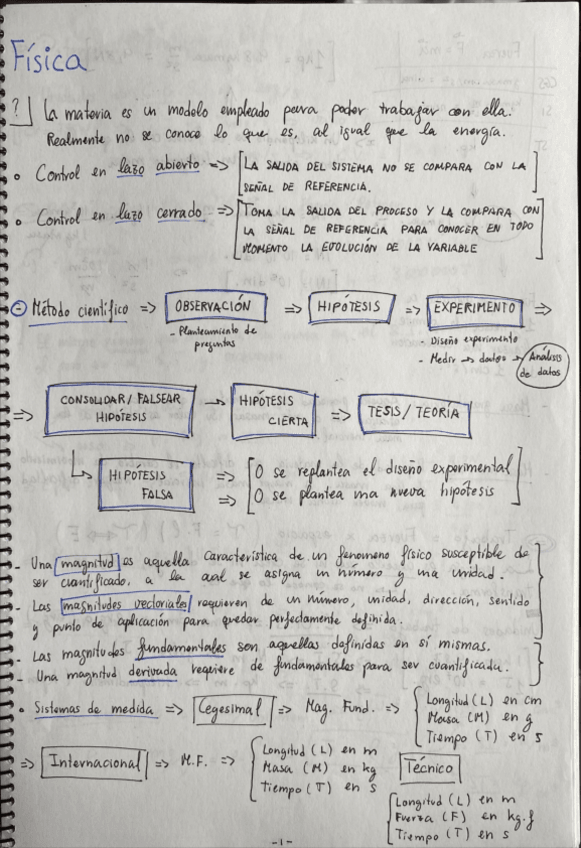 Física
? La materia es un modelo empleado para poder trabajar con ella.
Realmente no se conoce lo que es, al igual que la energía.
• Control en lazo abierto => [LA SALIDA DEL SISTEMA NO SE COMPARA CON LA
SEÑAL DE REFERENCIA.]
• Control en lazo cerrado => [TOMA LA SALIDA DEL PROCESO Y LA COMPARA CON
LA SEÑAL DE REFERENCIA PARA CONOCER EN TODO
MOMENTO LA EVOLUCIÓN DE LA VARIABLE]
Método científico => OBSERVACIÓN => HIPÓTESIS => EXPERIMENTO =>
- Planteamiento de
preguntas
- Diseño experimento
- Medir -> datos -> Análisis
de datos
=> CONSOLIDAR/FALSEAR
HIPÓTESIS -> HIPÓTESIS
CIERTA => TESIS/TEORÍA
HIPÓTESIS
FALSA
=> O se replantea el diseño experimental
=> O se plantea una nueva hipótesis
- Una magnitud es aquella característica de un fenomeno físico susceptible de
ser cuantificado, a la cual se asigna un número y una unidad.
- Las magnitudes vectoriales requieren de un número, unidad, dirección, sentido
y punto de aplicación para quedar perfectamente definida.
- Las magnitudes fundamentales son aquellas definidas en sí mismas.
- Una magnitud derivada requiere de fundamentales para ser cuantificada.
• Sistemas de medida => Cegesimal => Mag. Fund. =>
Longitud (L) en cm
Masa (M) en g
Tiempo (T) en s
=> Internacional => M.F. =>
Longitud (L) en m
Masa (M) en kg
Tiempo (T) en s
Técnico
Longitud (L) en m
Fuerza (F) en kg.f
Tiempo (T) en s
-1-